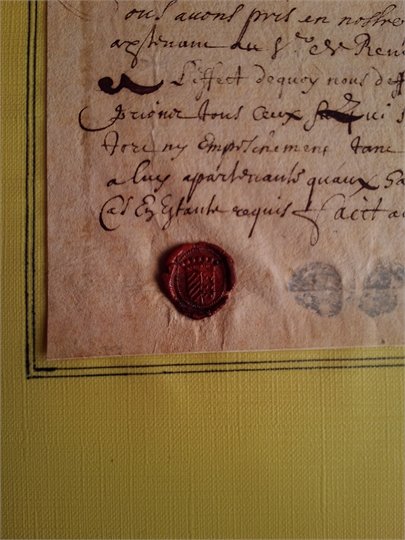 vous avons pris en nostre
apartenant au Sr de Ren
A L'effect dequoy nous deff
prions tous ceux qui s
tort ny Empeschement tant
a luy apartenants qu'aux sa
Cas En Estants requis faict a